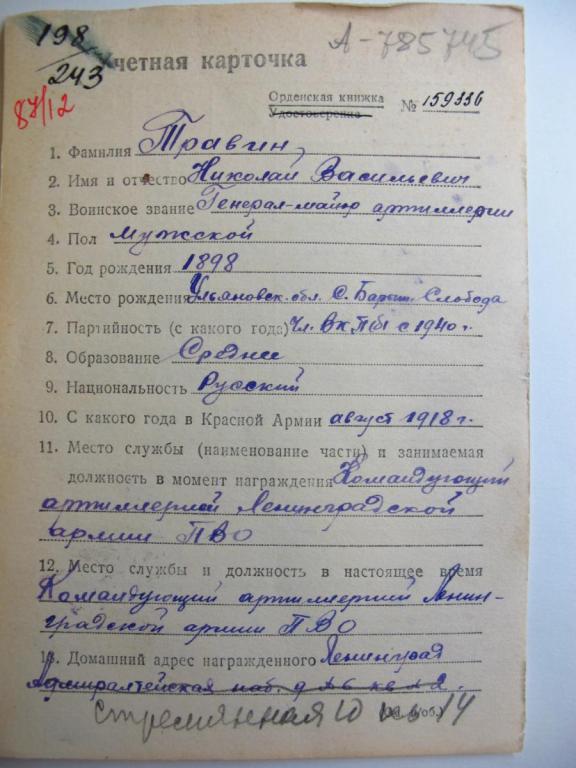 198/243
А-785745
87/12
четная карточка
Орденская книжка
Удостоверение
№ 159336
1. Фамилия Травин,
2. Имя и отчество Николай Васильевич
3. Воинское звание Генерал-майор артиллерии
4. Пол мужской
5. Год рождения 1898
6. Место рождения Ульяновск. обл. С. Барыш. Слобода
7. Партийность (с какого года) Чл. ВКП/б/ с 1940 г.
8. Образование Среднее
9. Национальность Русский
10. С какого года в Красной Армии август 1918 г.
11. Место службы (наименование части) и занимаемая
должность в момент награждения Командующий
артиллерией Ленинградской
армии ПВО
12. Место службы и должность в настоящее время
Командующий артиллерией Ленин-
градской армии ПВО
13. Домашний адрес награжденного Ленинград
Адмиралтейская наб. д № 6 кв № 2.
стремянная 10 кв 14